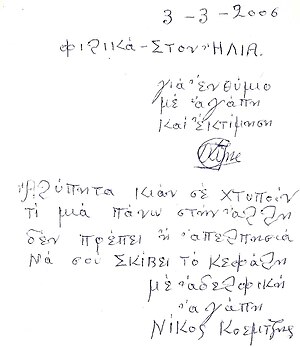 3-3-2006
ΦΙΛΙΚά-ΣΤΟΝ ἨΛΙΑ.
γιά ἐνθύμιο
μέ ἀγάπη
καί ἐκτίμηση
Ἀλύπητα κιάν σέ χτυποῦν
τἰ μιά πάνω στήν ἄλλη
δέν πρέπει ἡ ἀπελπησιά
Νά σοῦ ΣΚΊΒΕΙ ΤΟ ΚΕΦάλι
μέ ἀδελφική
ἀγάπη
ΝίΚΟΣ ΚΟΕΜΤΖής